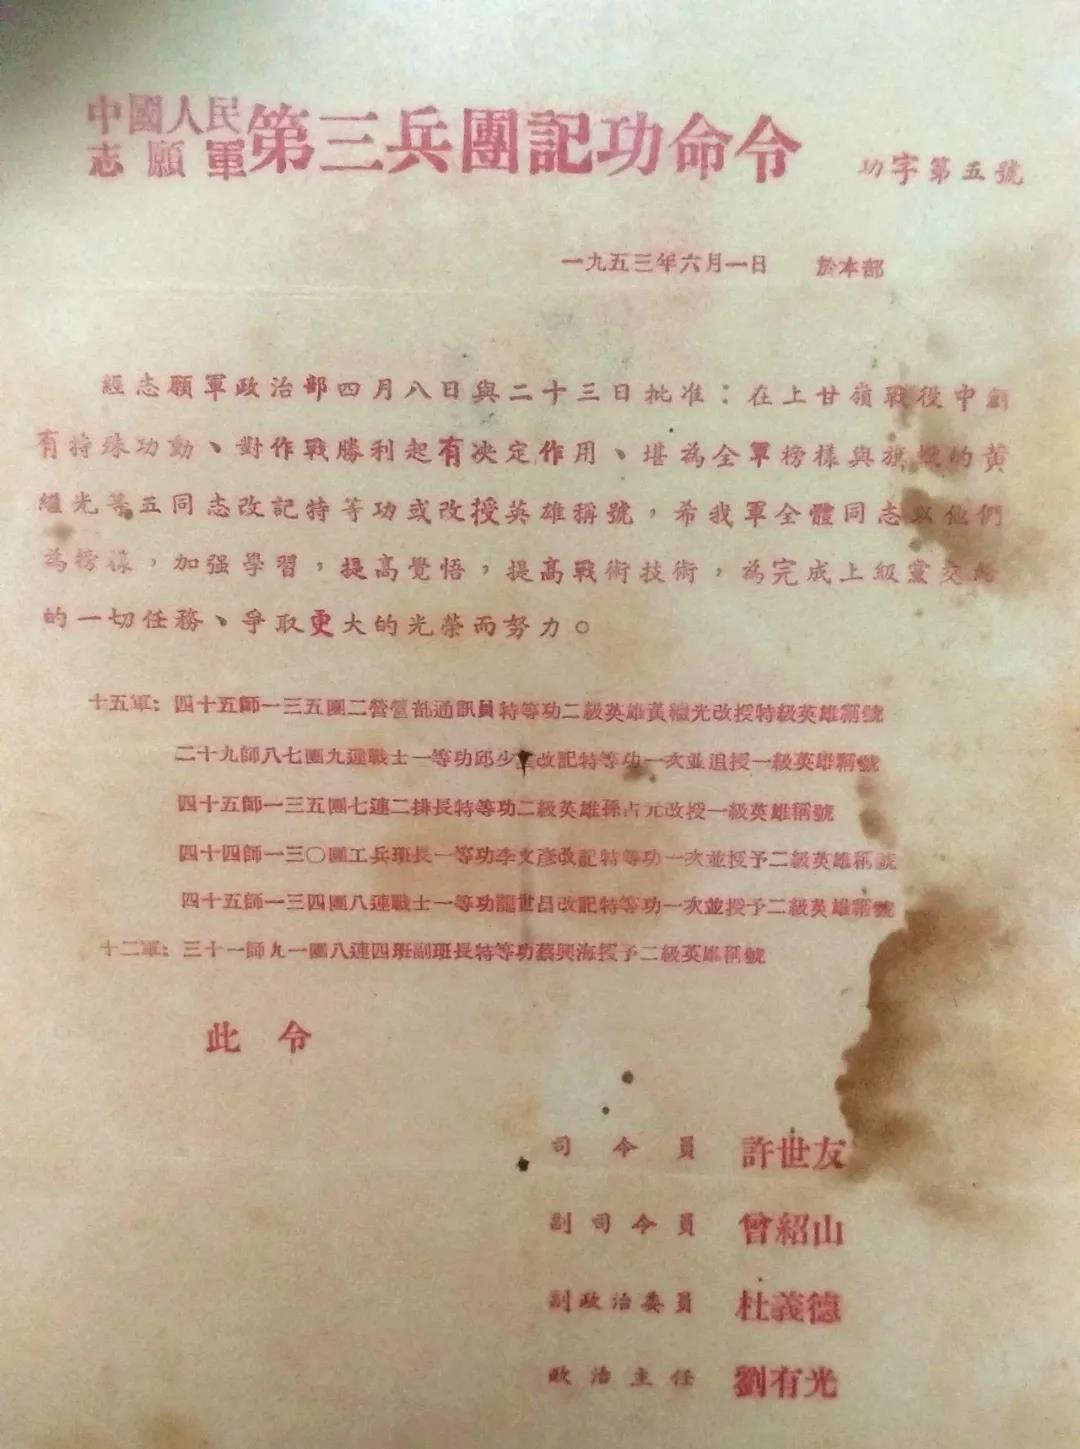 中國人民
志願軍
第三兵團記功命令
功字第五號
一九五三年六月一日 於本部
經志願軍政治部四月八日與二十三日批准：在上甘嶺戰役中創
有特殊功動、對作戰勝利起有决定作用、堪為全軍榜樣與旗幟的黃
繼光等五同志改記特等功或改授英雄稱號，希我軍全體同志以他們
為榜樣，加强學習，提高覺悟，提高戰術技術，為完成上級黨交給
的一切任務、爭取更大的光榮而努力。
十五軍：四十五師一三五團二營營部通訊員特等功二級英雄黃繼光改授特級英雄稱號
二十九師八七團九連戰士一等功邱少雲改記特等功一次並追授一級英雄稱號
四十五師一三五團七連二排長特等功二級英雄孫占元改授一級英雄稱號
四十四師一三〇團工兵班長一等功李文彥改記特等功一次並授予二級英雄稱號
四十五師一三四團八連戰士一等功龍世昌改記特等功一次並授予二級英雄稱號
十二軍：三十一師九一團八連四班副班長特等功蔡興海授予二級英雄稱號
此令
司令員 許世友
副司令員 曾紹山
副政治委員 杜義德
政治主任 劉有光